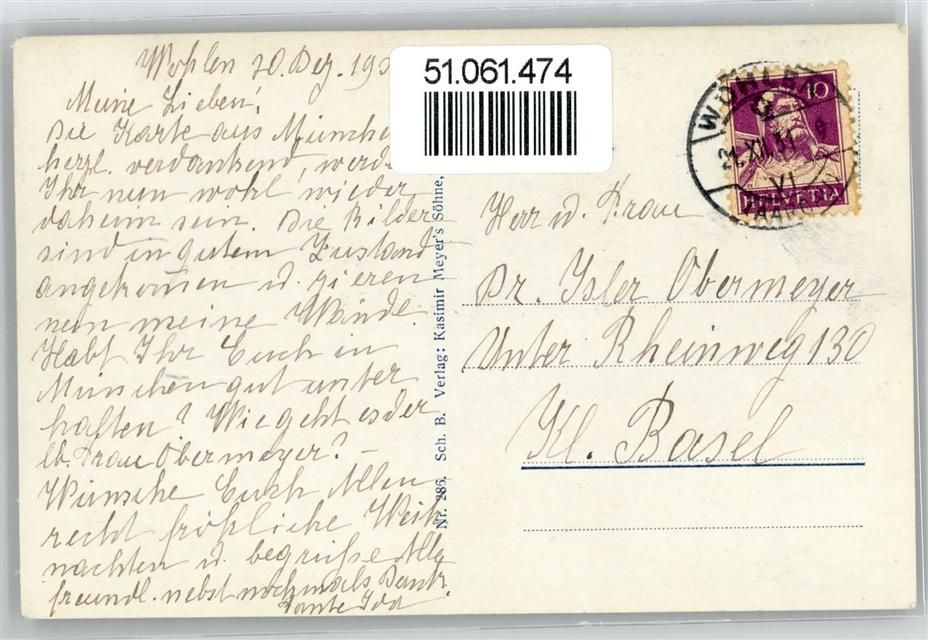 Wohlen 20. Dez. 19
Meine Lieben!
Die Karte aus München
herzl. verdankend, werdet
Ihr nun wohl wieder
daheim sein. Die Bilder
sind in gutem Zustand
angekom̄en u. zieren
nun meine Wände.
Habt Ihr Euch in
München gut unter
halten? Wie geht es der
lb. Frau Obermeyer? –
Wünsche Euch Allen
recht fröhliche Weih
nachten u. begrüße Alle
freundl. nebst nochmals Dank.
Tante Ida
51.061.474
Nr. 286. Sch. B. Verlag: Kasimir Meyer's Söhne,
WOHLEN
21.XII.31
XI
AARG
10
HELVETIA
Herr u. Frau
Dr. Isler Obermeyer
Unter Rheinweg 130
Kl. Basel